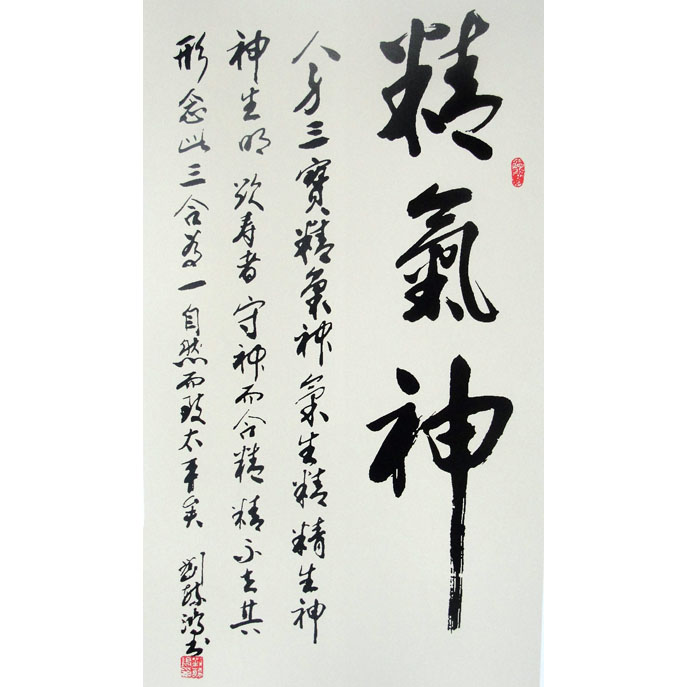 精氣神
人身三寶精氣神氣生精精生神
神生明欲寿者守神而合精精不去其
形念此三合為一自然而致太平矣